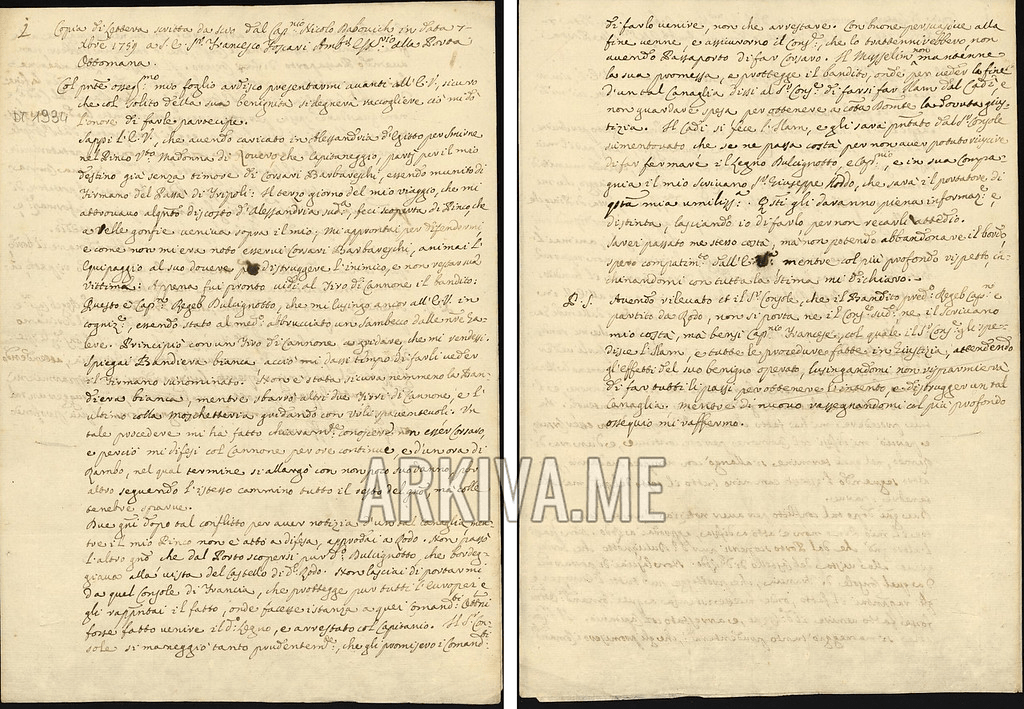 1
Copia di Lettera scritta da suo dal Cap.nio Nicolo Radovich in data 7
1759 a S. E. S.r Francesco Foscari Amb.r alla Porta
Ottomana.
Col mio foglio ardisco presentarmi avanti all'E.V., sicuro
che col solito della sua benignità si degnerà raccogliere, ciò mi dò
l'onore di farle partecipe.
DT 1934
Sappi l'E.V., che avendo caricato in Alessandria di Egitto per Smirne
nel Pinco Madonna di Rovero che Capitaneggio, partij per il mio
destino già senza timore di Corsari Barbareschi, essendo munito di
Firmano del Passà di Tripoli. Il terzo giorno del mio viaggio, che mi
attrovavo discosto d'Alessandria sud.a, feci scoperta di Pinco, che
a Velle gonfie veniva sopra il mio; mi approntai per difendermi
e come non mi era noto esservi Corsari Barbareschi, animai l'
Equipaggio al suo dovere distruggere l'inimico, e non restar sua
vittima. Appena fui pronto vidi al Tiro di Cannone il bandito:
Questo è Cap.o Regeb Dulcignotto, che mi lusingo ancor all'E.V. in
cogniz.e, essendo stato al med.o abbruciato un Sambeco dalle nre Ga-
lere. Principiò con un Tiro di Cannone a gridare, che mi rendessi.
Spiegai Bandiera bianca acciò mi dasse tempo di farli veder
il Firmano sunominato. Non è stata sicura nemmeno la Ban-
diera bianca, mentre sbarrò altri due Tiri di Cannone, e l'
ultimo colla Moschetteria gridando con voci spaventevoli. Un
tale procedere mi ha fatto chiaram.te conoscere non esser Corsaro,
e perciò mi difesi col Cannone per ore continue, e d'un'ora di
Gambo, nel qual termine si allargò con non poco suo danno, per
altro seguendo l'istesso cammino tutto il resto del gno, ma colle
tenebre sparve.
Due gni dopo tal conflitto per aver notizia d'un tal canaglia, men-
tre il mio Pinco non è atto a difesa, approdai a Rodo. Non passò
l'altro gno che dal Porto scopersi pur d.o Dulcignotto che bordeg-
giava alla vista del Castello di d.o Rodo. Non lasciai di portarmi
da quel Console di Francia, che protegge pur tutti l'Europei e
gli rappntai il fatto, onde facesse istanza a quei Comand.ti Ottni
forte fatto venire il d.o Legno, e arrestato col Capitanio. Il S.r Con-
sole si maneggiò tanto prudentem.te, che gli promisero i Comand.ti
di farlo venire, non che arrestare. Con buone persuasive alla
fine venne, e assicurorno il Cons.e, che lo tratterrebbero non
avendo Passaporto di far Corsaro. Il Mysselin non mantenne
la sua promessa, e protesse il bandito, onde per veder la fine
d'un tal Canaglia dissi al S.r Cons.e di farsi far Ilam dal Cadì, e
non guardare spesa per ottenere a cota Ponte la dovuta giu-
stizia. Il Cadì si fece l'Ilam, e gli sarà pntato dal S.r Console
sumentovato che se ne passa costà per non aver potuto riuscire
di far fermare il Legno Dulcignotto, e Cap.nio, e in sua Compa-
gnia il mio Scrivano S.r Giuseppe Roddo, che sarà il portatore di
qsta mia umiliss.a. Qsti gli daranno piena informaz.e, e
distinta, lasciando io di farlo per non recarle attedio.
Sarei passato me stesso costà, ma non potendo abbandonare il bordo,
spero compatim.to dall'E. mentre col più profondo rispetto in-
chinandomi con tutta la stima me di chiaro.
P. S. Avendo rilevato il S.r Console, che il Bandito pred.o Regeb Cap.o è
partito da Rodo, non si porta nè il Cons.e sud.o nè il Scrivano
mio costà, ma bensì Cap.nio Francese, col quale il S.r Cons.e gli spe-
disce l'Ilam, e tutte le procedure fatte in Giustizia, attendendo
gl'effetti del suo benigno operato, lusingandomi non risparmierà
di far tutti li passi per ottenere l'intento, e distrugger un tal
Canaglia. mentre di nuovo rassegnandomi col più profondo
ossequio mi raffermo.
ARKIVA.ME